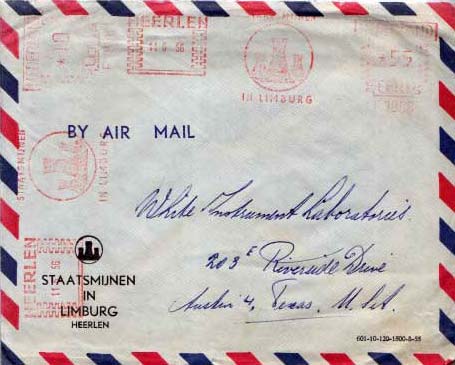 HEERLEN
STAATSMIJNEN
IN LIMBURG
HEERLEN
BY AIR MAIL
STAATSMIJNEN
IN LIMBURG
White Instrument Laboratories.
203 E Riverside Drive
Austin 4, Texas. U.S.A.
HEERLEN
STAATSMIJNEN
IN
LIMBURG
HEERLEN
601-10-120-1500-8-55